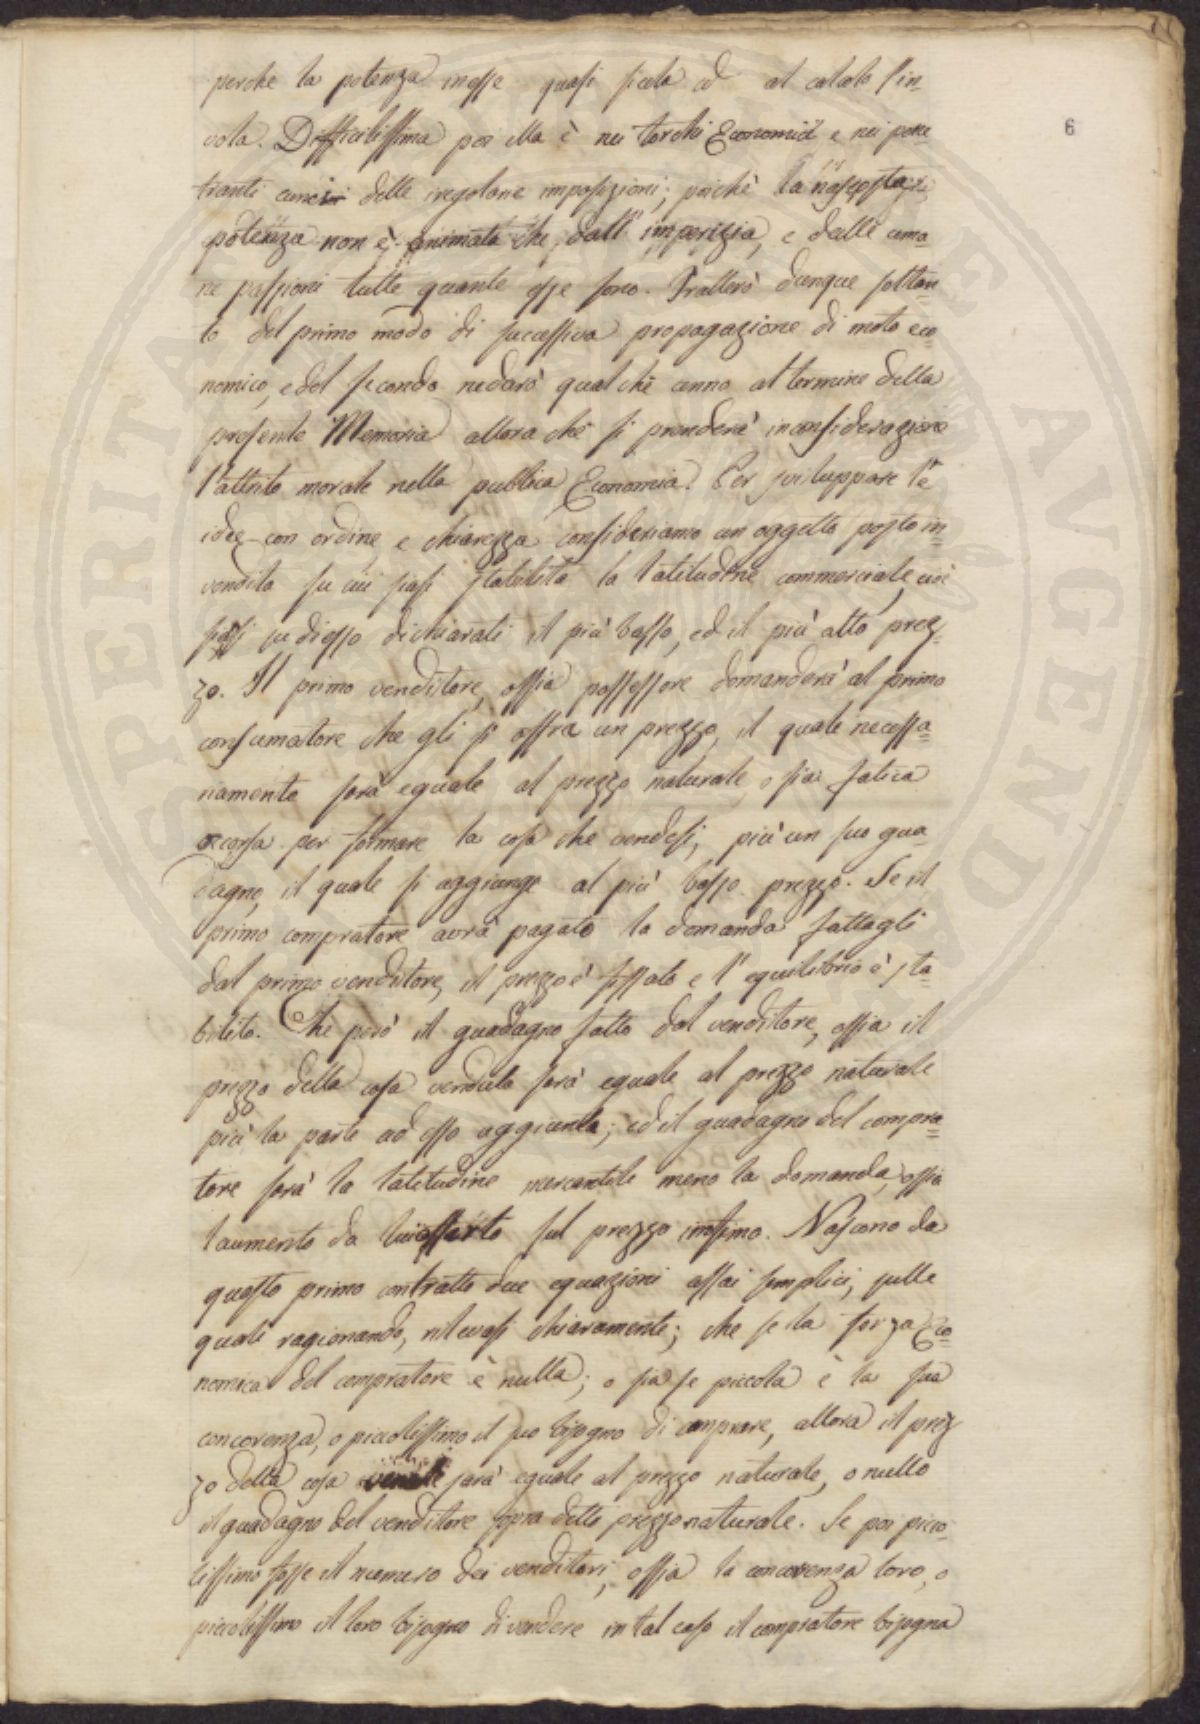 perche la potenza inesse quasi ficola ed al calcolo s'in-
vola. Difficilissima poi ella è nei torchi Economici e nei pene
tranti cunei delle iregolare imposizioni; poichè la nascosta
potenza non è animata che dall' imperizia, e dalle uma-
ne passioni tutte quante esse sono. Tratterò dunque soltan
to del primo modo di successiva propagazione di moto eco
nomico, e del secondo nedarò qualche cenno al termine della
presente Memoria allora che si prenderà inconsiderazione
l'attrito morale nella publica Economia. Per sviluppare le
idee con ordine e chiarezza consideriamo un oggetto posto in
vendita su cui siasi stabilita la latitudine commerciale, cioè
siasi su diesso dichiarati il più basso, ed il più alto prez-
zo. Il primo venditore, ossia possessore domanderà al primo
consumatore che gli si offra un prezzo, il quale necessa-
riamente sarà eguale al prezzo naturale, o sia fatica
occorsa per formare la cosa che vendesi, più un suo gua
dagno, il quale si aggiunge al più basso prezzo. Se il
primo compratore avrà pagato la domanda fattagli
dal primo venditore, il prezzo è fissato e l' equilibrio è sta
bilito. Che però il guadagno fatto dal venditore, ossia il
prezzo della cosa venduta sarà eguale al prezzo naturale
più la parte ad esso aggiunta; ed il guadagno del compra-
tore sarà la latitudine mercantile meno la domanda, ossia
laumento da lui offerto sul prezzo infimo. Nascono da
questo primo contratto due equazioni assai semplici, sulle
quali ragionando, rilevasi chiaramente; che se la forza Eco
nomica del compratore è nulla; o sia se piccola è la sua
concorenza, o piccolissimo il suo bisogno di comprare, allora il prez
zo della cosa venale sarà eguale al prezzo naturale, o nullo
il guadagno del venditore sopra detto prezzo naturale. Se poi picco-
lissimo fosse il numero dei venditori, ossia la concorenza loro, o
piccolissimo il loro bisogno di vendere in tal caso il compratore bisogna
6